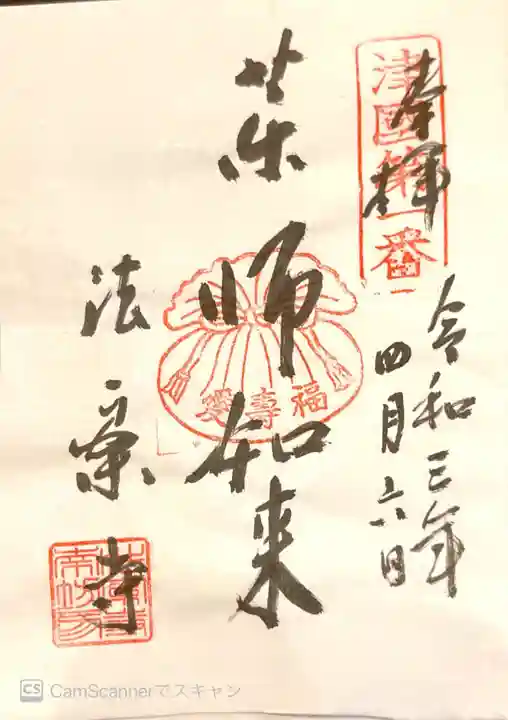 奉拝
津國第一番
令和三年
四月六日
薬師如来
福壽愛
法楽寺
CS CamScannerでスキャン